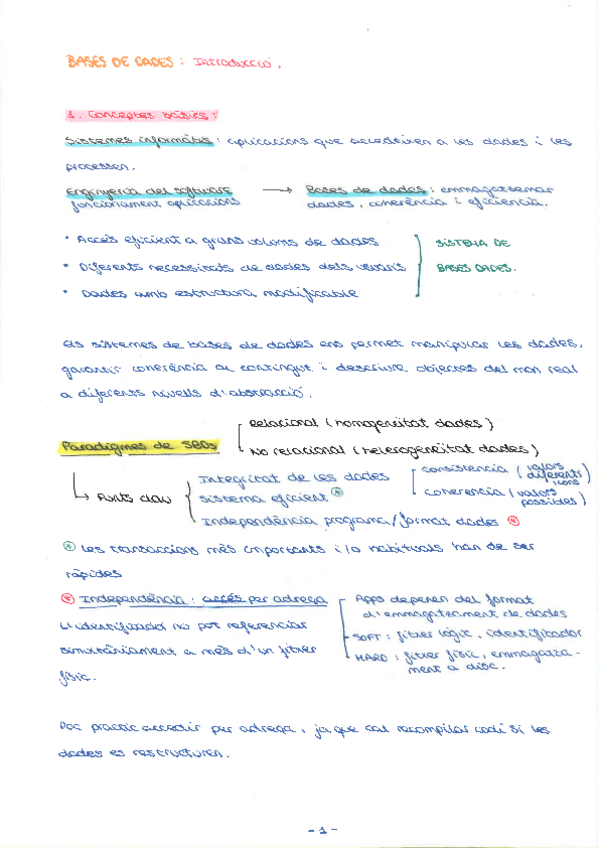 BASES DE DADES : Introducció.
1. Conceptes bàsics :
Sistemes informàtics : aplicacions que accedeixen a les dades i les
processen.
Enginyeria del software → Bases de dades : emmagatzemar
funcionament aplicacions dades, coherència i eficiència.
· Accés eficient a grans volums de dades
· Diferents necessitats de dades dels usuaris
· Dades amb estructura modificable
SISTEMA DE
BASES DADES.
Els sistemes de bases de dades ens permet manipular les dades,
garantir coherència al contingut i descriure objectes del mon real
a diferents nivells d'abstracció.
Paradigmes de SBDs
Relacional (homogeneïtat dades)
No relacional (heterogeneïtat dades)
↳ Punts claw
Integritat de les dades
sistema eficient
Independència programa/format dades
consistencia (valors diferents
coherencia (valors possibles)
Les transaccions més importants i/o habituals han de ser
ràpides
Independència : accés per adreça
L'identificador no pot referenciar
simultàniament a més d'un fitxer
físic.
Apps depenen del format
d'emmagatzament de dades
SOFT : fitxer lògic, identificador
HARD : fitxer físic, emmagatza-
ment a disc.
Poc pràctic accedir per adreça, ja que cal recompilar codi si les
dades es restructuren.
- 1 -